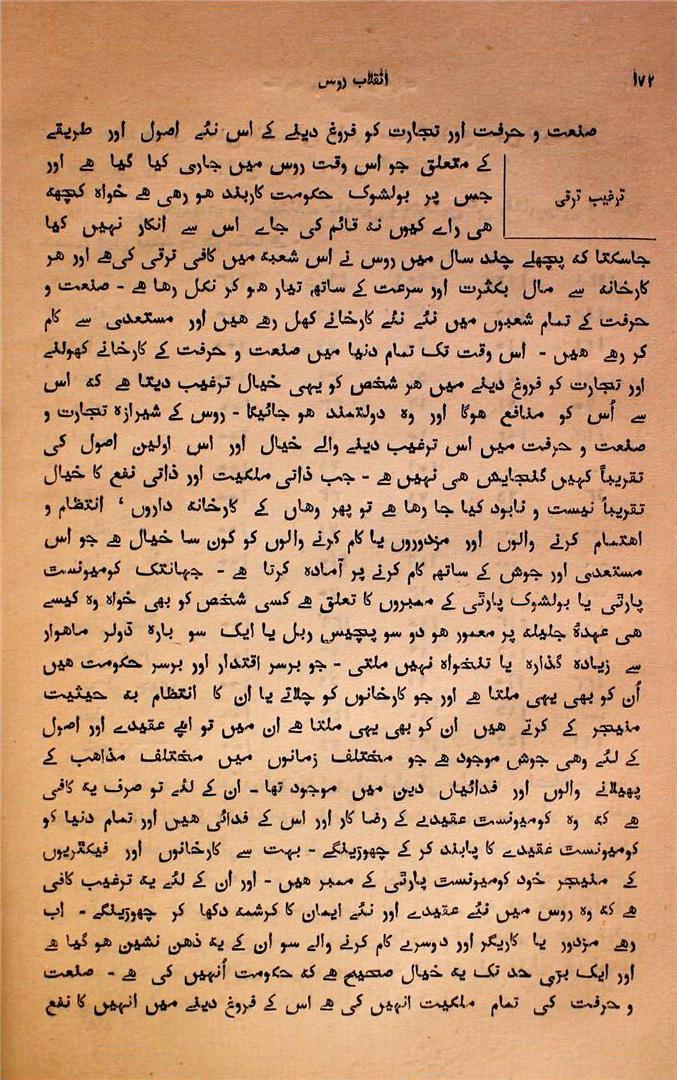 ۱۷۲
انقلاب روس
صنعت و حرفت اور تجارت کو فروغ دینے کے اس نئے اصول اور طریقے
ترغیب ترقی
کے متعلق جو اس وقت روس میں جاری کیا گیا ہے اور
جس پر بولشوک حکومت کاربند ہو رہی ہے خواہ کچھہ
ہی راے کیوں نہ قائم کی جاے اس سے انکار نہیں کیا
جاسکتا کہ پچھلے چند سال میں روس نے اس شعبہ میں کافی ترقی کی ہے اور ہر
کارخانہ سے مال بکثرت اور سرعت کے ساتھہ تیار ہو کر نکل رہا ہے - صنعت و
حرفت کے تمام شعبوں میں نئے نئے کارخانے کھل رہے ہیں اور مستعدی سے کام
کر رہے ہیں - اس وقت تک تمام دنیا میں صنعت و حرفت کے کارخانے کھولنے
اور تجارت کو فروغ دینے میں ہر شخص کو یہی خیال ترغیب دیتا ہے کہ اس
سے اُس کو منافع ہوگا اور وہ دولتمند ہو جائیگا - روس کے شیرازہ تجارت و
صنعت و حرفت میں اس ترغیب دینے والے خیال اور اس اولین اصول کی
تقریباً کہیں گنجایش ہی نہیں ہے - جب ذاتی ملکیت اور ذاتی نفع کا خیال
تقریباً نیست و نابود کیا جا رہا ہے تو پھر وہاں کے کارخانہ داروں ‘ انتظام و
اہتمام کرنے والوں اور مزدوروں یا کام کرنے والوں کو کون سا خیال ہے جو اس
مستعدی اور جوش کے ساتھہ کام کرنے پر آمادہ کرتا ہے - جہانتک کومیونست
پارٹی یا بولشوک پارٹی کے ممبروں کا تعلق ہے کسی شخص کو بھی خواہ وہ کیسے
ہی عہدۂ جلیلہ پر معمور ہو دو سو پچیس ربل یا ایک سو بارہ ڈولر ماہوار
سے زیادہ گذارہ یا تنخواہ نہیں ملتی - جو برسر اقتدار اور برسر حکومت ہیں
اُن کو بھی یہی ملتا ہے اور جو کارخانوں کو چلاتے یا ان کا انتظام بہ حیثیت
منیجر کے کرتے ہیں ان کو بھی یہی ملتا ہے ان میں تو اپے عقیدے اور اصول
کے لئے وہی جوش موجود ہے جو مختلف زمانوں میں مختلف مذاہب کے
پھیلانے والوں اور فدائیاں دین میں موجود تھا - ان کے لئے تو صرف یہ کافی
ہے کہ وہ کومیونست عقیدے کے رضا کار اور اس کے فدائی ہیں اور تمام دنیا کو
کومیونست عقیدے کا پابند کر کے چھوڑینگے - بہت سے کارخانوں اور فیکٹریوں
کے منیجر خود کومیونست پارٹی کے ممبر ہیں - اور ان کے لئے یہ ترغیب کافی
ہے کہ وہ روس میں نئے عقیدے اور نئے ایمان کا کرشمہ دکھا کر چھوڑینگے - اب
رہے مزدور یا کاریگر اور دوسرے کام کرنے والے سو ان کے یہ ذہن نشین ہو گیا ہے
اور ایک بڑی حد تک یہ خیال صحیح ہے کہ حکومت اُنہیں کی ہے - صنعت
و حرفت کی تمام ملکیت انہیں کی ہے اس کے فروغ دینے میں انہیں کا نفع